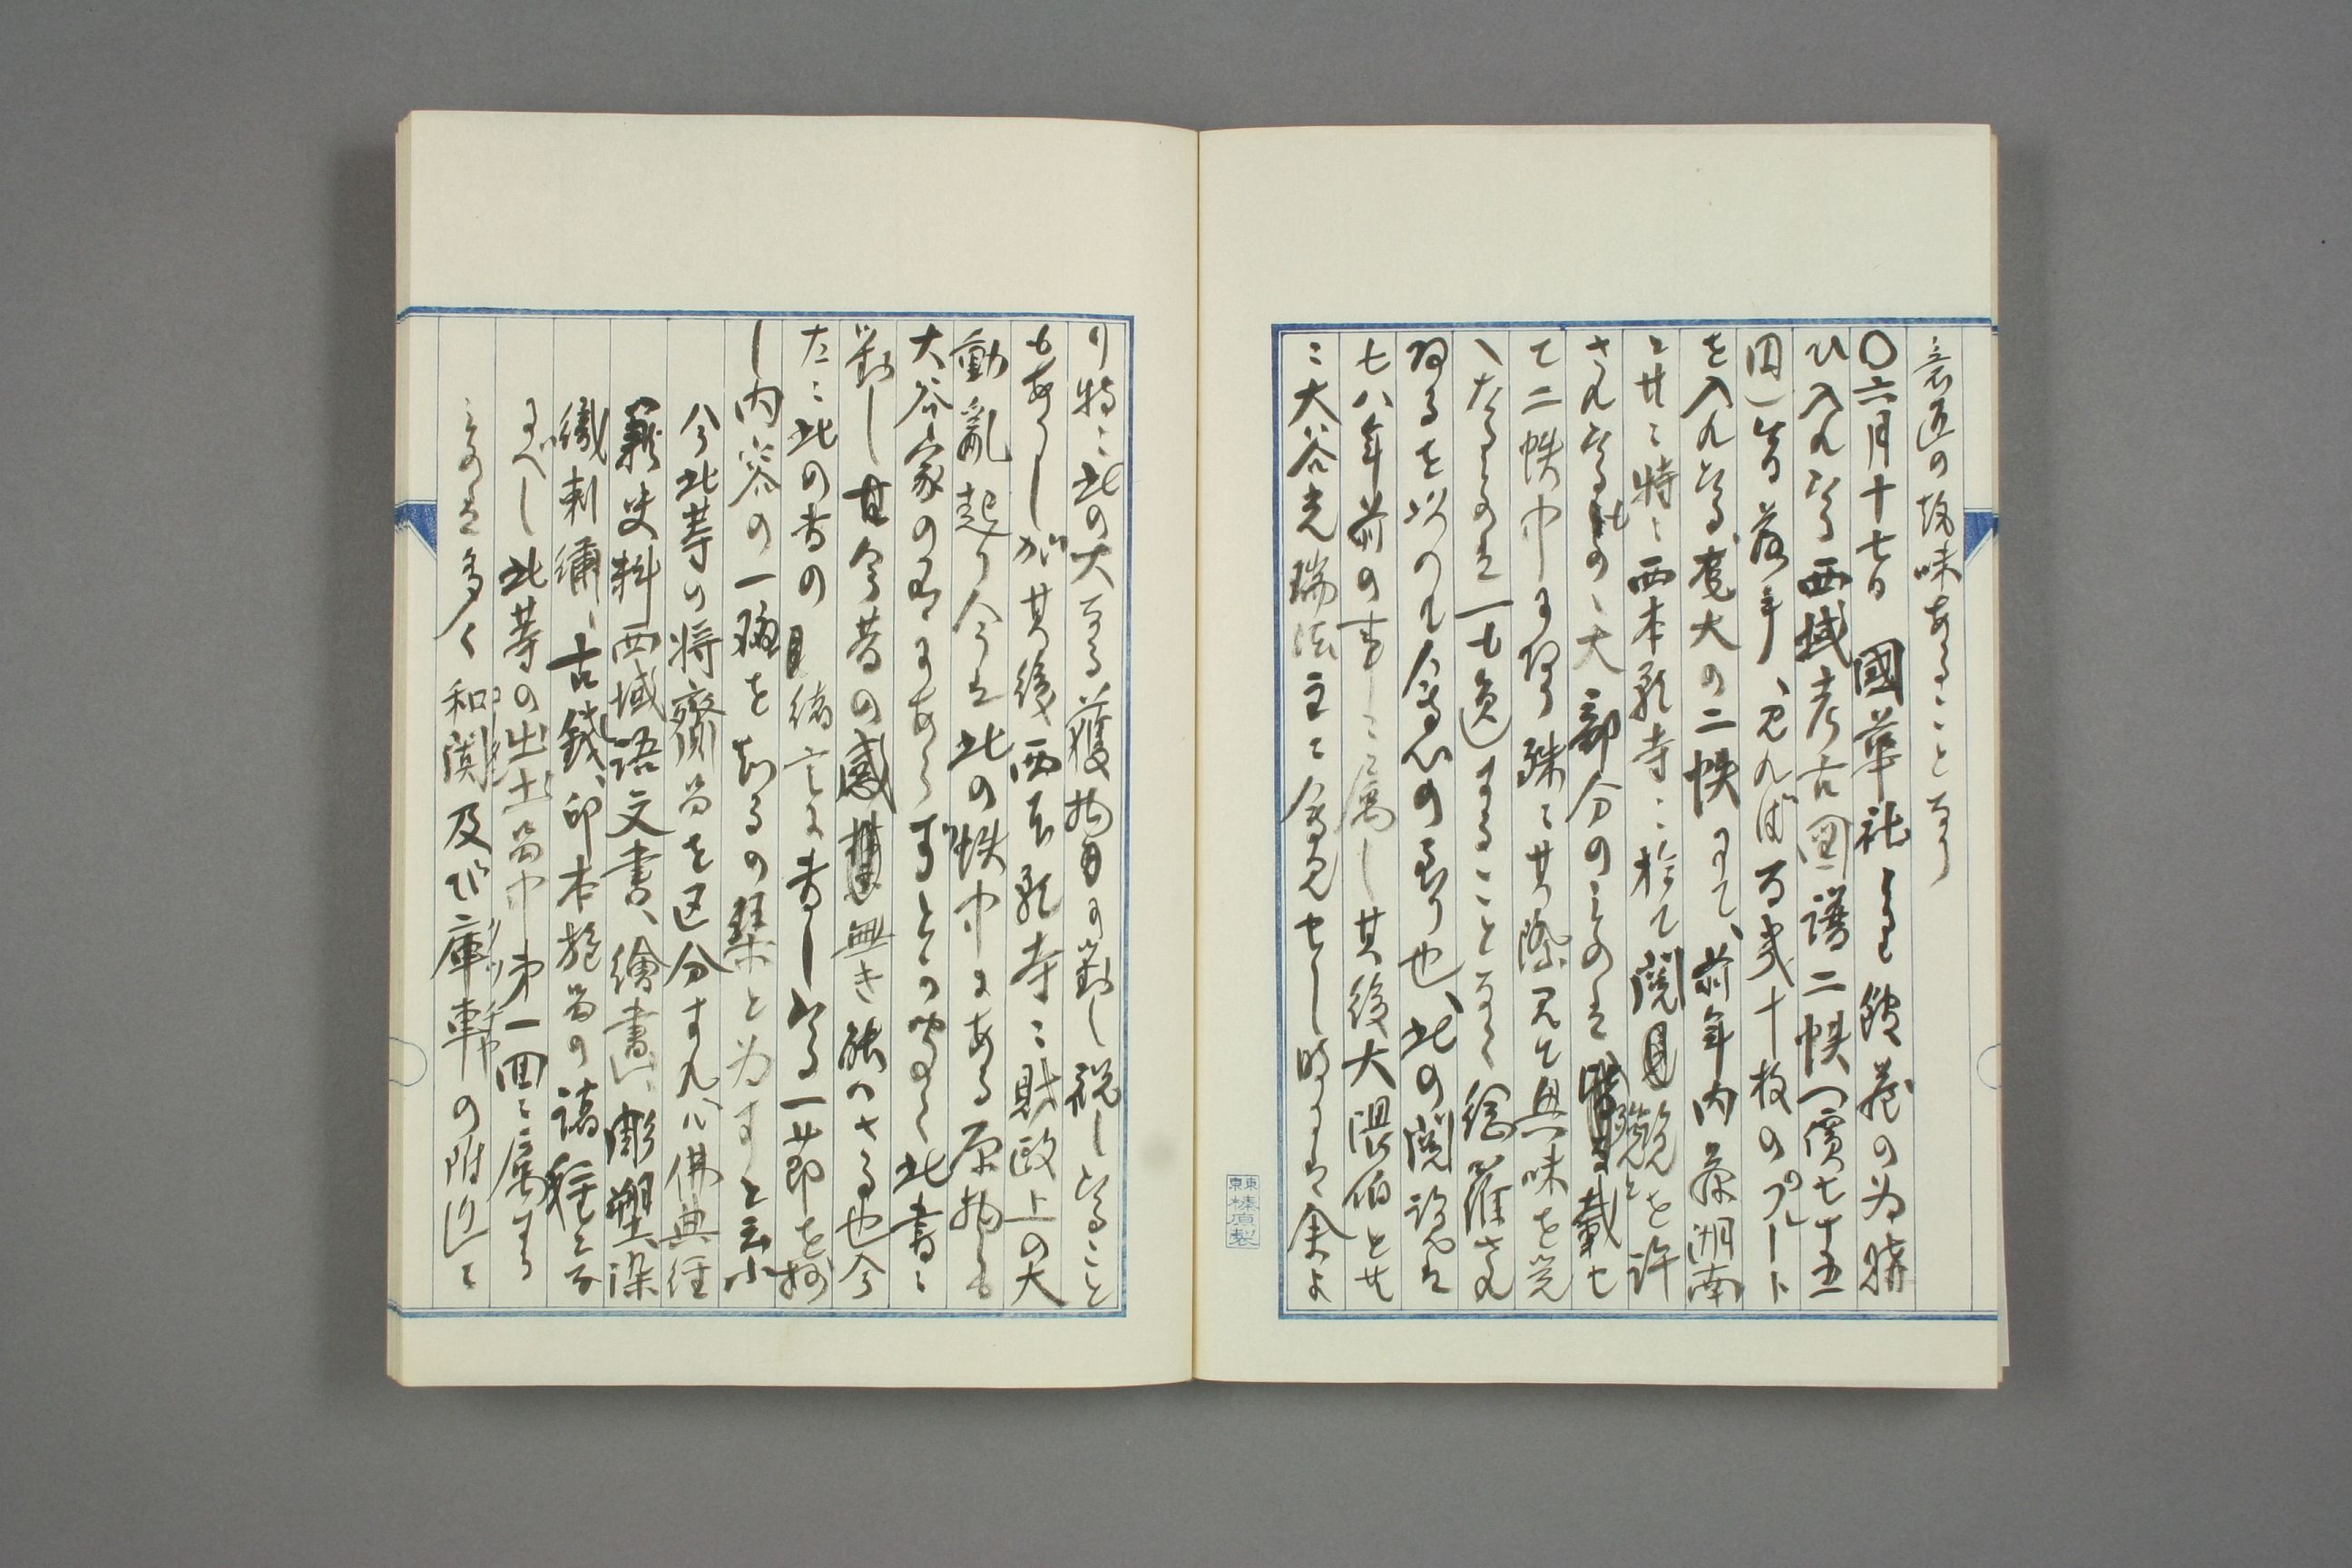 意匠の妙味あることなり
〇六月十七日 國華社より館蔵の為購
ひ入れたる西域考古図譜二帙(價七十五
円)皆落手、見れば百幾十枚のプレート
を入れたる厖大の二帙にて、前年内藤湖南
と共に特に西本願寺に於て閲覧を許
されたるもの、大部分のものは載せ
て二帙中にあり殊に其際見て興味を覚
へたるものは一も逸することなく網羅され
あるを以つて会心の至り也、此の閲覧は
七八年前の事に属し其後大隈伯と共
に大谷光瑞法主に会見せし時には余よ
り特に此の大なる獲物に対し祝したること
もありしが其後西本願寺に財政上の大
動乱起り今は此の帙中にある原物も
大谷家の有にあらずとの噂なく此書に
対し今昔の感無き能はさる也今
左に此の書の緒言に書したる一節を抄
し内容の一班を知るの栞と為すと云尓
今此等の将齎品を区分すれバ佛典経
籍史料西域語文書、繪畫、彫塑、染
織刺繍、古銭、印本旅品の諸種となす
べし此等の出土品中第一回に属する
ものは多く和闐及び庫車の附近に
東京榛原製